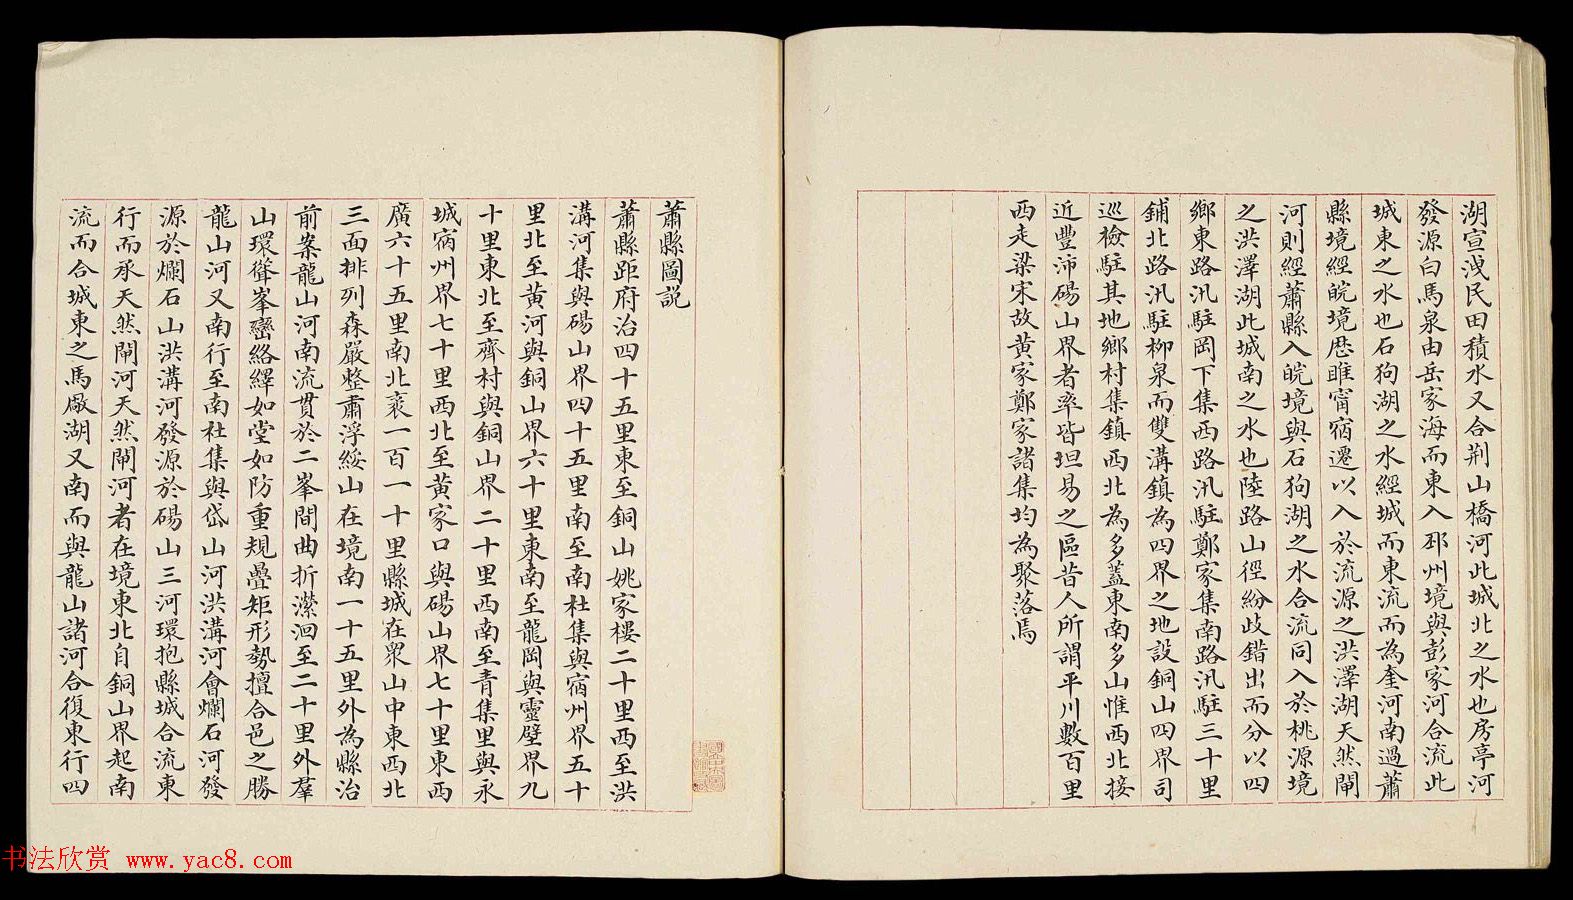 湖宣洩民田積水又合荆山橋河此城北之水也房亭河
發源白馬泉由岳家海而東入邳州境與彭家河合流此
城東之水也石狗湖之水經城而東流而為奎河南過蕭
縣境經皖境歴睢甯宿遷以入於流源之洪澤湖天然閘
河則經蕭縣入皖境與石狗湖之水合流同入於桃源境
之洪澤湖此城南之水也陸路山徑紛歧錯出而分以四
鄉東路汛駐岡下集西路汛駐鄭家集南路汛駐三十里
鋪北路汛駐柳泉而雙溝鎮為四界之地設銅山四界司
巡檢駐其地鄉村集鎮西北為多蓋東南多山惟西北接
近豐沛碭山界者率皆坦易之區昔人所謂平川數百里
西走梁宋故黃家鄭家諸集均為聚落焉
蕭縣圖説
蕭縣距府治四十五里東至銅山姚家樓二十里西至洪
溝河集與碭山界四十五里南至南杜集與宿州界五十
里北至黃河與銅山界六十里東南至龍岡與靈壁界九
十里東北至齊村與銅山界二十里西南至青集里與永
城宿州界七十里西北至黃家口與碭山界七十里東西
廣六十五里南北袤一百一十里縣城在眾山中東西北
三面排列森嚴整肅浮綏山在境南一十五里外為縣治
前案龍山河南流貫於二峯間曲折瀠洄至二十里外羣
山環聳峯巒絡繹如堂如防重規疊矩形勢擅合邑之勝
龍山河又南行至南杜集與岱山河洪溝河會爛石河發
源於爛石山洪溝河發源於碭山三河環抱縣城合流東
行而承天然閘河天然閘河者在境東北自銅山界起南
流而合城東之馬廠湖又南而與龍山諸河合復東行四
书法欣赏 www.yac8.com